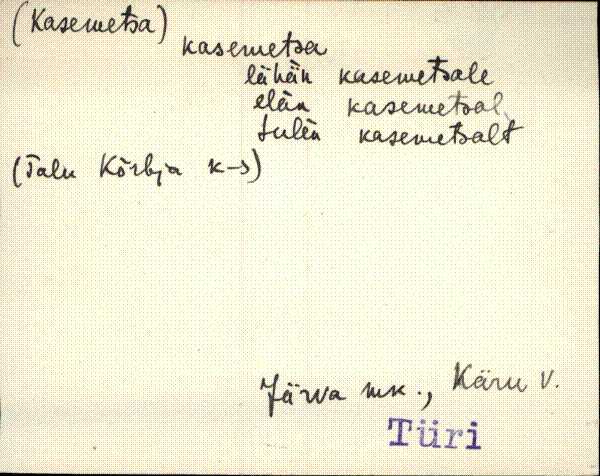 (Kasemetsa)
kasemetsa
lähän kasemetsale
elän kasemetsal
tulen kasemetsalt
(Talu Kõrbja k-s)
Järva mk., Käru v.
Türi